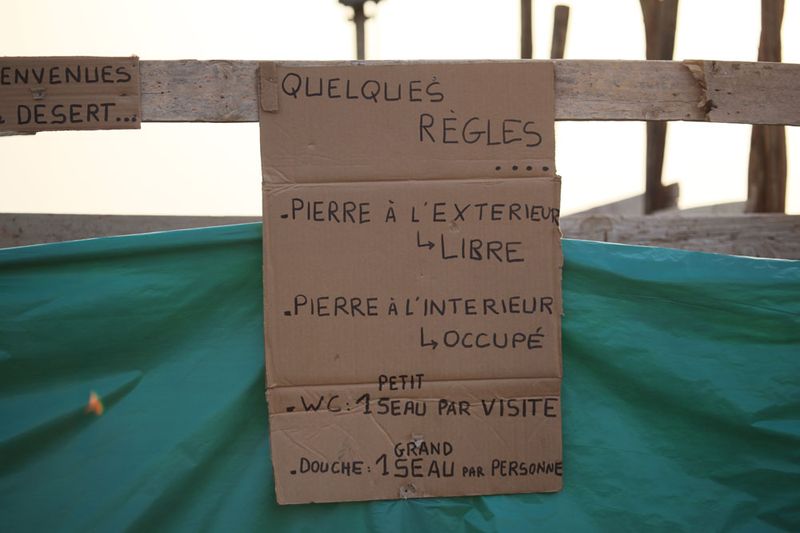 ENVENUES
DESERT...
QUELQUES
RÈGLES
....
.PIERRE À L'EXTERIEUR
↳ LIBRE
.PIERRE À L'INTERIEUR
↳ OCCUPÉ
PETIT
.WC: 1 SEAU PAR VISITE
GRAND
.DOUCHE: 1 SEAU PAR PERSONNE